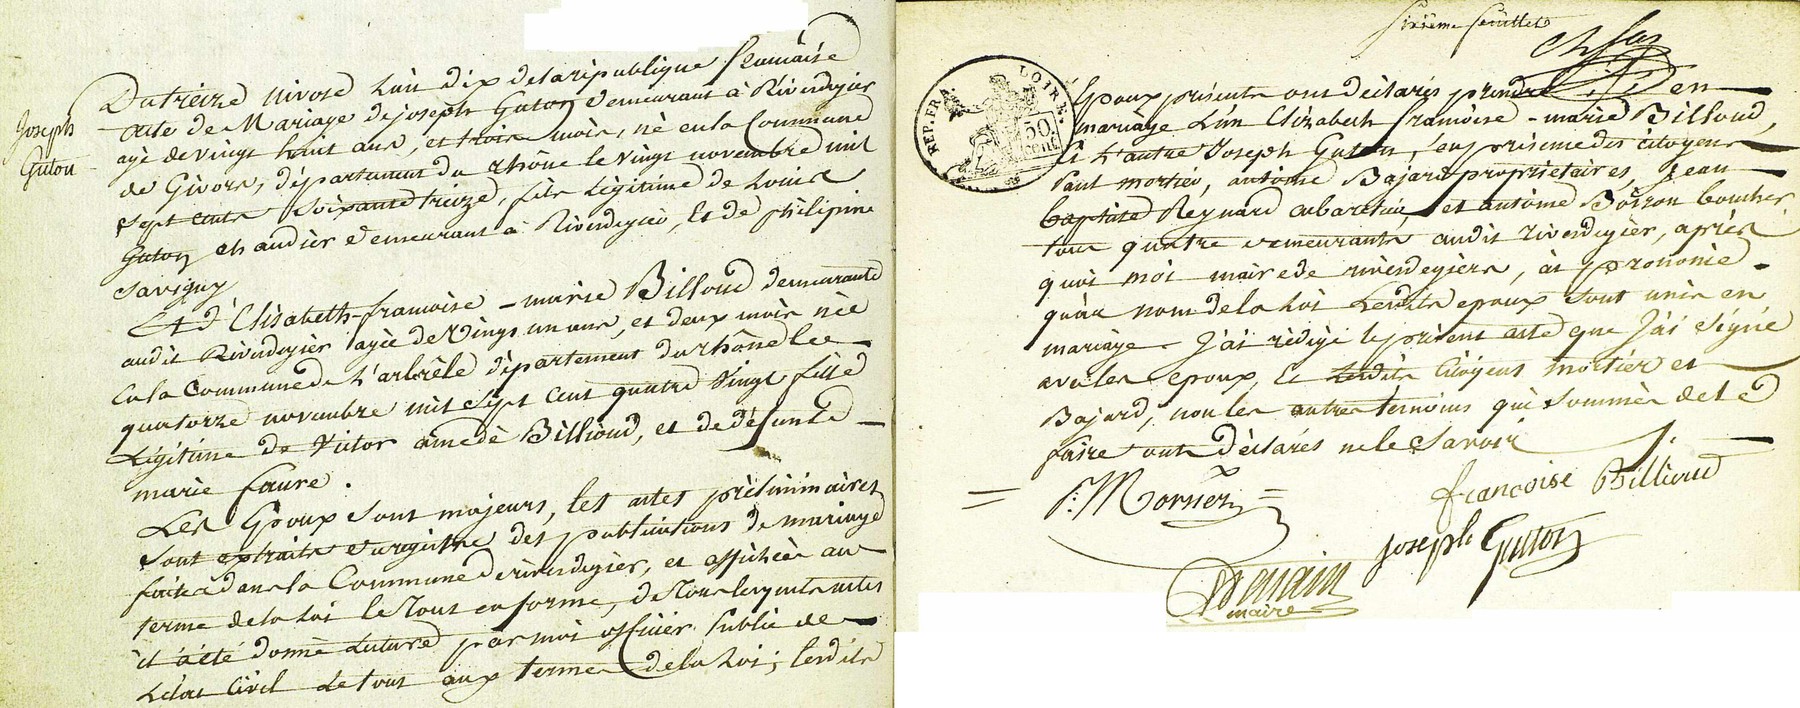 Joseph
Guton
Du treize nivose L'an dix de la république francaise
acte de Mariage de joseph Guton demeurant à Rivedegier
agé de vingt huit ans, et trois mois, né en la Commune
de Givors, département du rhône le vingt novembre mil
sept cents soixante treize, fils légitime de Louis
Guton chaudier demeurant à Rivedegier, Et de philipine
Savigny
Et d'Elisabeth-francoise-marie Billoud demeurante
audit Rivedegier agée de Vingt un ans, et deux mois née
en la Commune de L'arbrêle département du rhône le
quatorze novembre mil sept Cent quatre Vingt fille
légitime de Victor amedé Billioud, et de défunte
marie faure.
Les Epoux sont majeurs, les actes préliminaires
sont extraits du registre des publications de mariage
faites dans la Commune de rivedegier, et affichées au
terme de la loi le tout en forme, de tous lesquels actes
il a été donné lecture par moi officier Public de
L'état Civil le tout aux termes de la Loi; lesdits
Sixième feuillet
REP. FRA. LOIRE.
50. cent.
Epoux présents ont déclarés prendre en
mariage L'un Elizabeth francoise-marie Billoud,
Et L'autre Joseph Guton, en présence des citoyens
Paul mortier, antoine Bajard propriétaires, Jean
baptiste Reynard cabaretier, et antoine Boisson boucher
tous quatre demeurants audit rivedegier, après
quoi moi maire de rivedegiers, ai prononcé
qu'au nom de la Loi Lesdits epoux sont unis en
mariage. J'ai rédigé le présent acte que J'ai signé
avec les epoux, Et lesdits Citoyens mortier et
Bajard, non les autres temoins qui sommés de le
faire ont déclarés ne le Savoir
P. Mortier
francoise Billioud
joseph Guton
maire